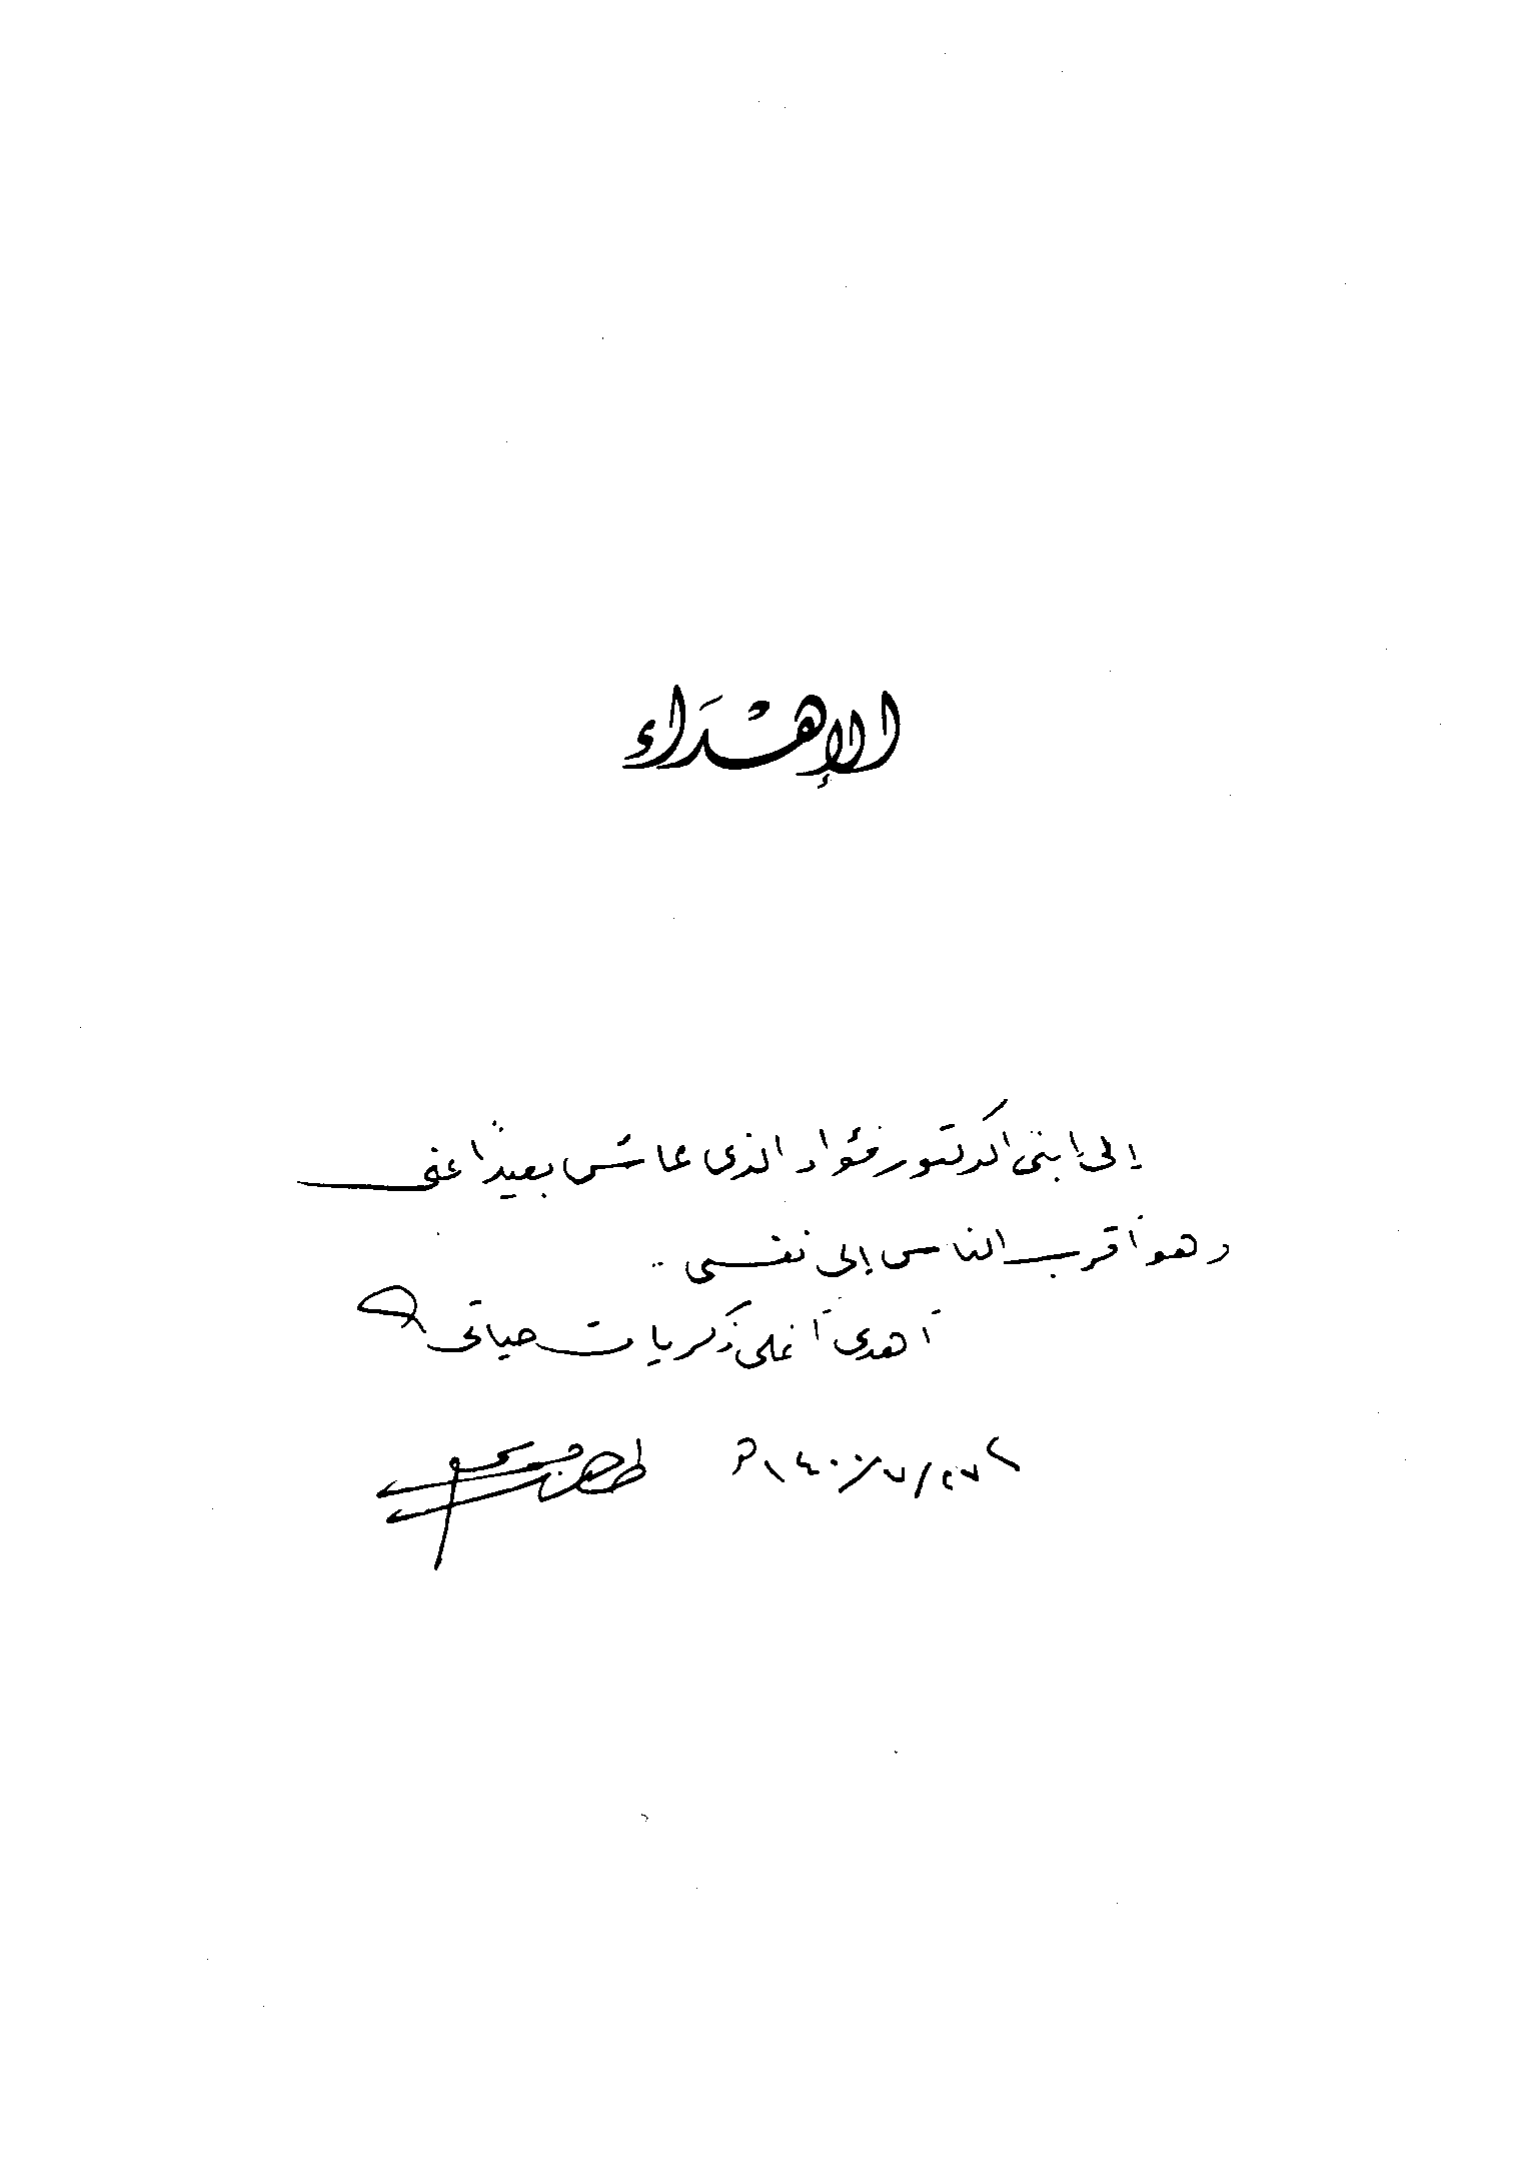 الإهْدَاء
إلى إبنى الدكتور فؤاد الذى عاش بعيدًا عنى
وهو أقرب الناس إلى نفسى ..
أهدى أغلى ذكريات حياتى
٢٧/٧/١٤٠٠هـ